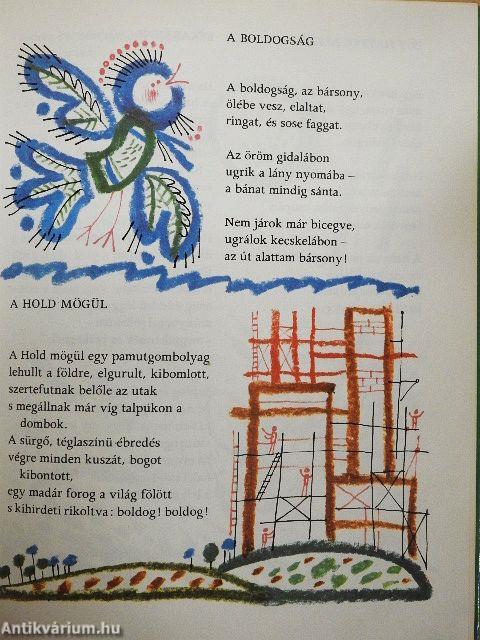 A BOLDOGSÁG
A boldogság, az bársony,
ölébe vesz, elaltat,
ringat, és sose faggat.
Az öröm gidalábon
ugrik a lány nyomába –
a bánat mindig sánta.
Nem járok már bicegve,
ugrálok kecskelábon –
az út alattam bársony!
A HOLD MÖGÜL
A Hold mögül egy pamutgombolyag
lehullt a földre, elgurult, kibomlott,
szertefutnak belőle az utak
s megállnak már víg talpukon a
dombok.
A sürgő, téglaszínü ébredés
végre minden kuszát, bogot
kibontott,
egy madár forog a világ fölött
s kihirdeti rikoltva: boldog! boldog!
Antikvárium.hu